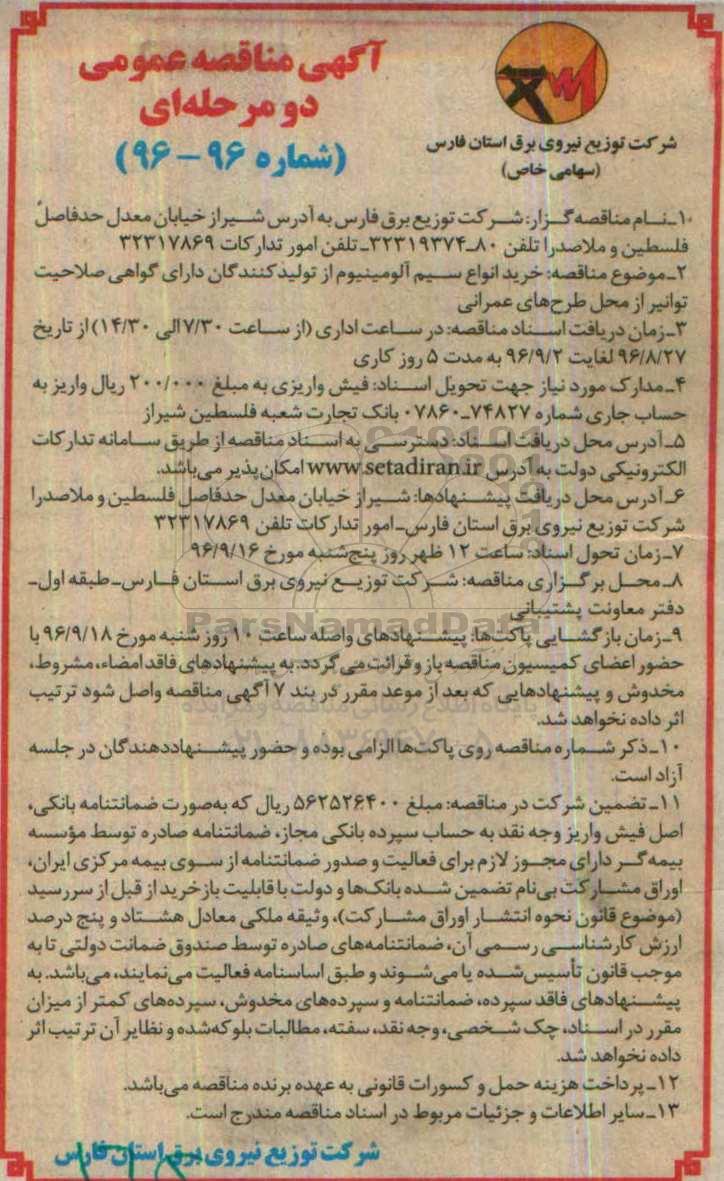 آگهی مناقصه عمومی
دو مرحله‌ای
(شماره ۹۶ – ۹۶)
شرکت توزیع نیروی برق استان فارس
(سهامی خاص)
۱ـ نـام مناقصه‌گـزار: شـرکت توزیع برق فارس به آدرس شـیراز خیابان معدل حدفاصل
فلسطین و ملاصدرا تلفن ۸۰ـ۳۲۳۱۹۳۷۴ـ تلفن امور تدارکات ۳۲۳۱۷۸۶۹
۲ـ موضوع مناقصه: خرید انواع سـیم آلومینیوم از تولیدکنندگان دارای گواهی صلاحیت
توانیر از محل طرح‌های عمرانی
۳ـ زمان دریافت اسـناد مناقصه: در سـاعت اداری (از سـاعت ۷/۳۰ الی ۱۴/۳۰) از تاریخ
۹۶/۸/۲۷ لغایت ۹۶/۹/۲ به مدت ۵ روز کاری
۴ـ مدارک مورد نیاز جهت تحویل اسـناد: فیش واریزی به مبلغ ۲۰۰/۰۰۰ ریال واریز به
حساب جاری شماره ۷۴۸۲۷ـ۰۷۸۶۰ بانک تجارت شعبه فلسطین شیراز
۵ـ آدرس محل دریافت اسـناد: دسترسـی به اسـناد مناقصه از طریق سـامانه تدارکات
الکترونیکی دولت به آدرس www.setadiran.ir امکان‌پذیر می‌باشد.
۶ـ آدرس محل دریافت پیشـنهادها: شـیراز خیابان معدل حدفاصل فلسطین و ملاصدرا
شرکت توزیع نیروی برق استان فارس ـ امور تدارکات تلفن ۳۲۳۱۷۸۶۹
۷ـ زمان تحول اسناد: ساعت ۱۲ ظهر روز پنج‌شنبه مورخ ۹۶/۹/۱۶
۸ـ محـل برگـزاری مناقصه: شـرکت توزیـع نیروی برق اسـتان فـارس ـ طبقه اول ـ
دفتر معاونت پشتیبانی
ParsNamadData
۹ـ زمان بازگشـایی پاکت‌ها: پیشـنهادهای واصله ساعت ۱۰ روز شنبه مورخ ۹۶/۹/۱۸ با
حضور اعضای کمیسیون مناقصه باز و قرائت می‌گردد. به پیشنهادهای فاقد امضاء، مشروط،
مخدوش و پیشنهادهایی که بعد از موعد مقرر در بند ۷ آگهی مناقصه واصل شود ترتیب
اثر داده نخواهد شد.
۱۰ـ ذکر شـماره مناقصه روی پاکت‌ها الزامی بوده و حضور پیشـنهاددهندگان در جلسه
آزاد است.
۱۱ـ تضمین شرکت در مناقصه: مبلغ ۵۶۲۵۲۶۴۰۰ ریال که به‌صورت ضمانتنامه بانکی،
اصل فیش واریز وجه نقد به حساب سپرده بانکی مجاز، ضمانتنامه صادره توسط مؤسسه
بیمه‌گـر دارای مجـوز لازم برای فعالیت و صدور ضمانتنامه از سـوی بیمه مرکزی ایران،
اوراق مشـارکت بی‌نام تضمین شـده بانک‌ها و دولت با قابلیت بازخرید از قبل از سررسید
(موضوع قانون نحوه انتشـار اوراق مشـارکت)، وثیقه ملکی معادل هشـتاد و پنج درصد
ارزش کارشناسـی رسـمی آن، ضمانتنامه‌های صادره توسط صندوق ضمانت دولتی تا به
موجب قانون تأسیس‌شـده یا می‌شـوند و طبق اساسنامه فعالیت می‌نمایند، می‌باشد. به
پیشـنهادهای فاقد سپرده، ضمانتنامه و سپرده‌های مخدوش، سپرده‌های کمتر از میزان
مقرر در اسـناد، چک شـخصی، وجه نقد، سفته، مطالبات بلوکه‌شده و نظایر آن ترتیب اثر
داده نخواهد شد.
۱۲ـ پرداخت هزینه حمل و کسورات قانونی به عهده برنده مناقصه می‌باشد.
۱۳ـ سایر اطلاعات و جزئیات مربوط در اسناد مناقصه مندرج است.
شرکت توزیع نیروی برق استان فارس